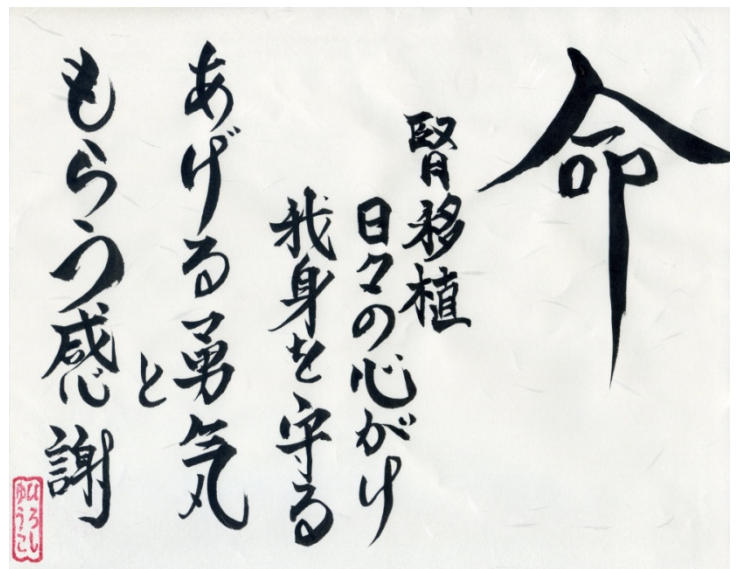 命
腎移植
日々の心がけ
我身を守る
あげる勇気
と
もらう感謝
ひろし
ゆうこ